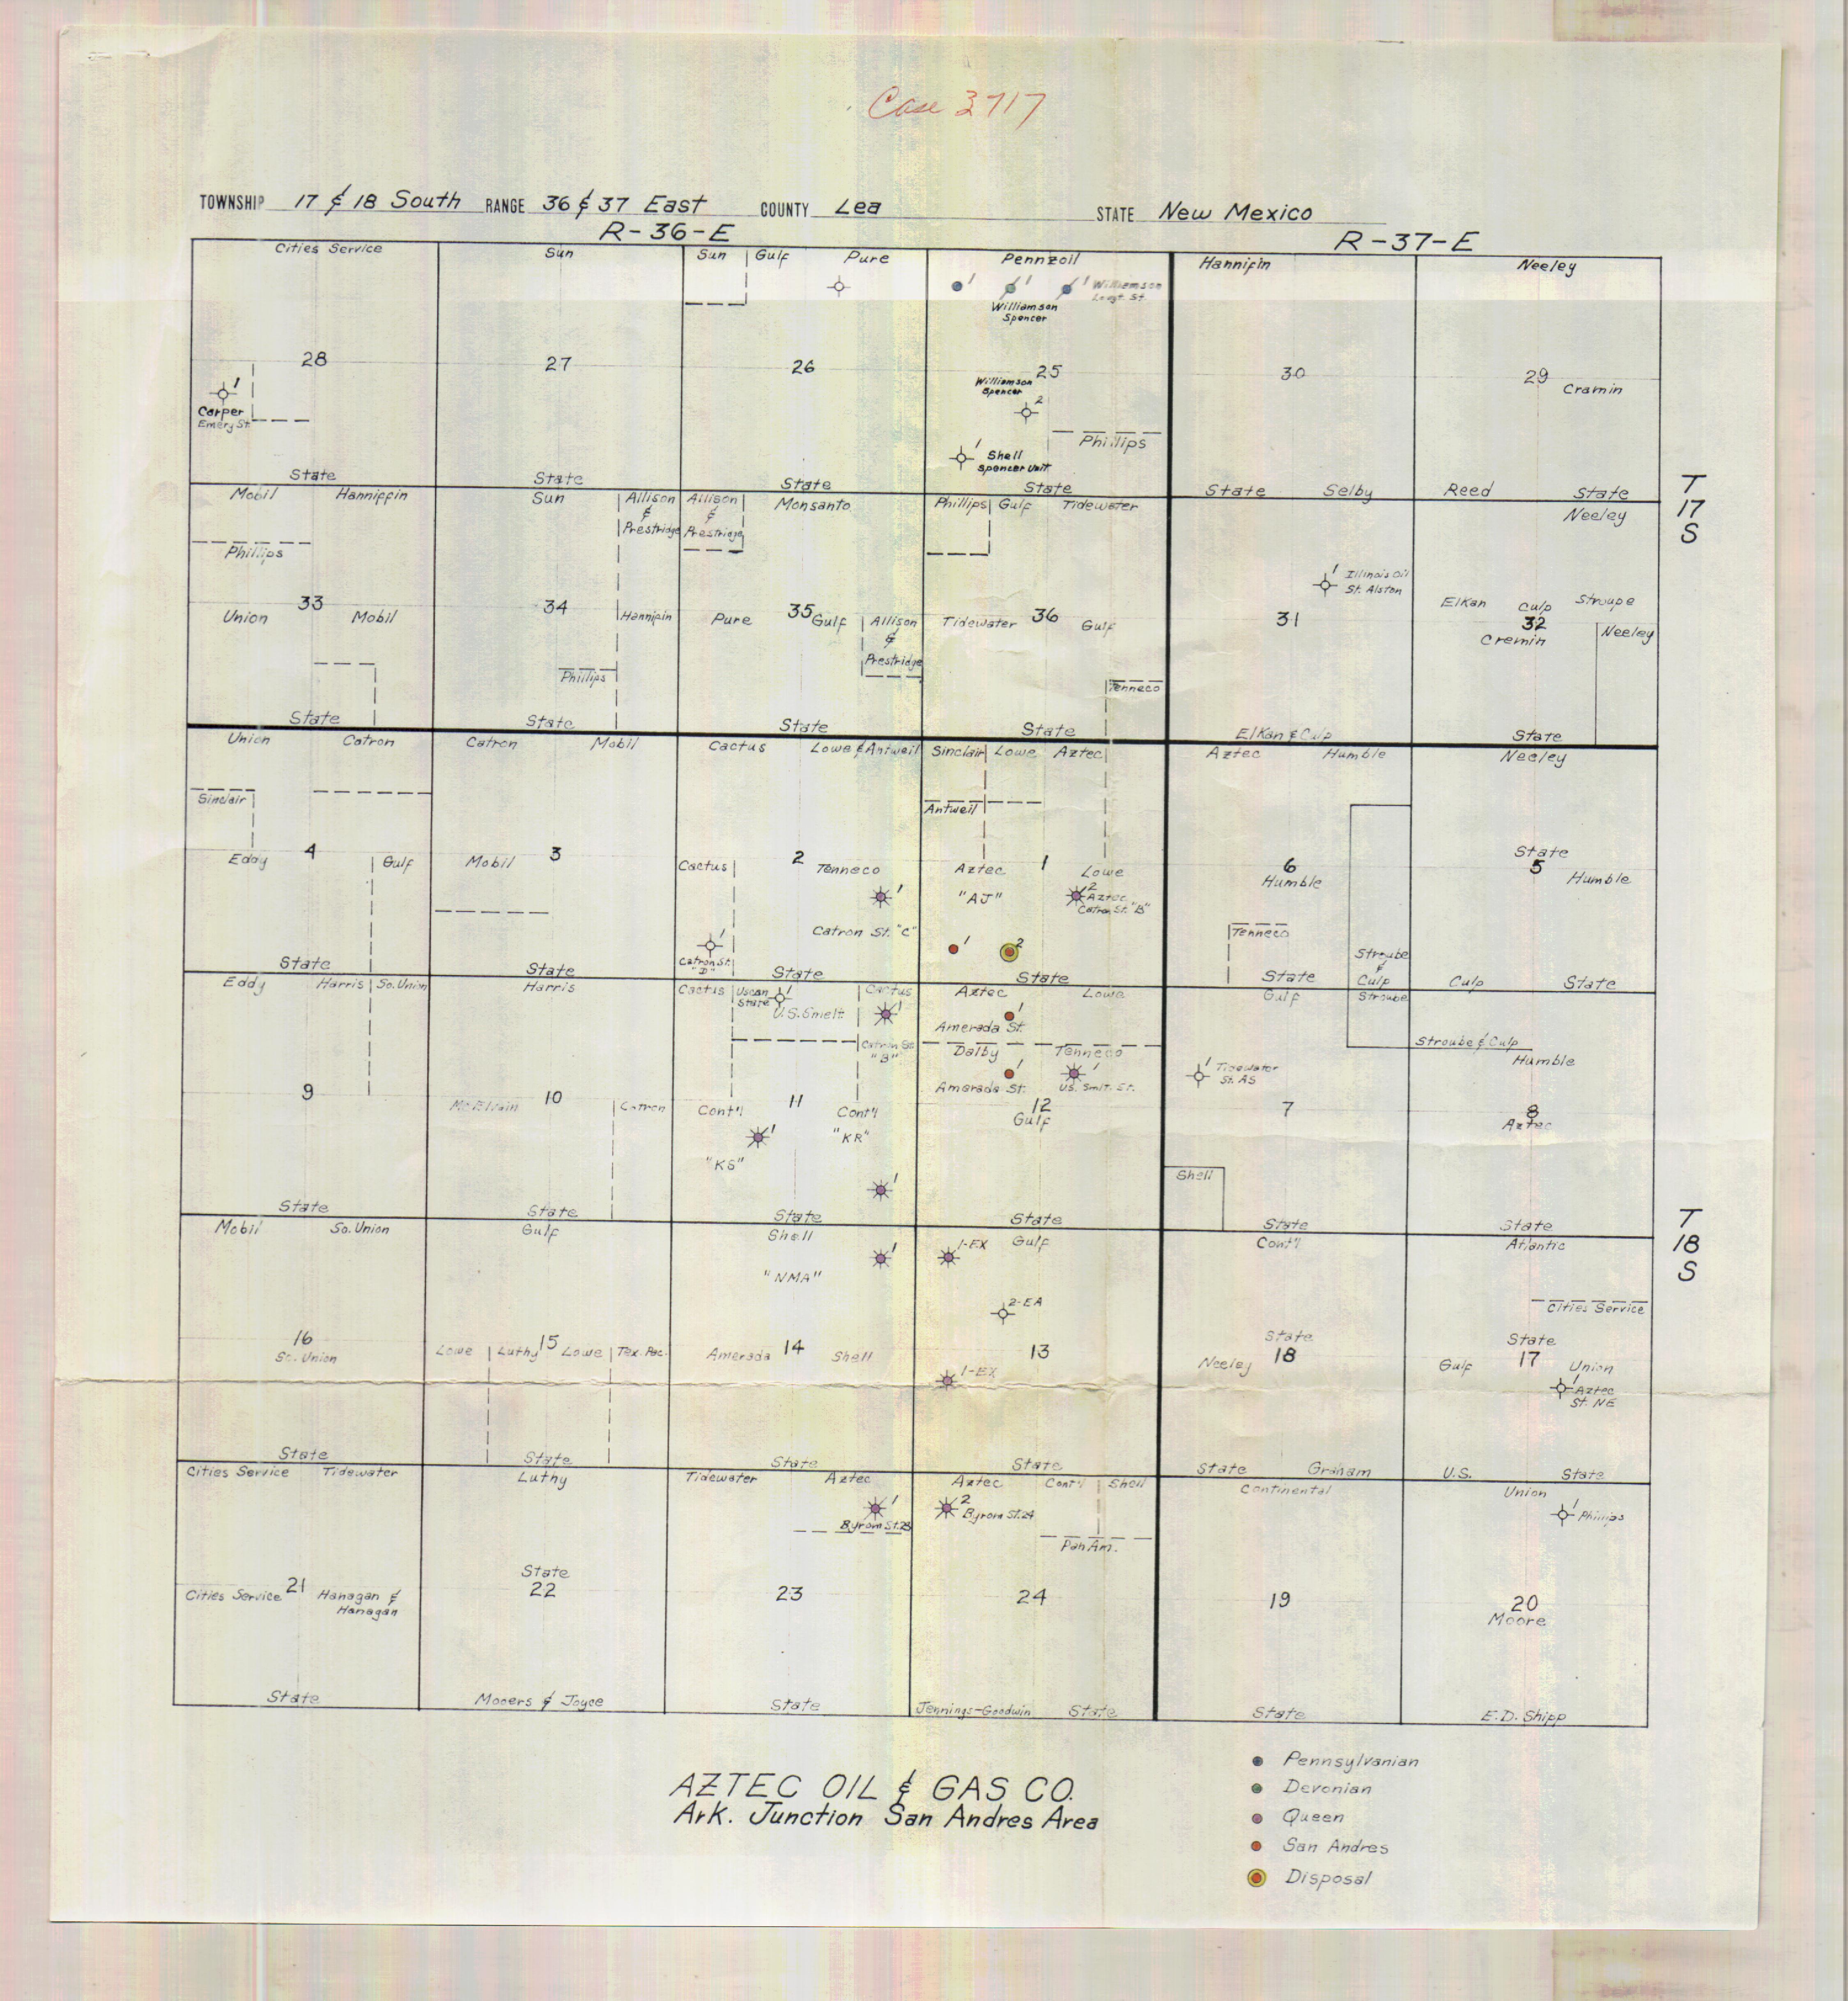 Case 3717
TOWNSHIP 17 & 18 South RANGE 36 & 37 East COUNTY Lea STATE New Mexico
R-36-E R-37-E
Cities Service
28
1
Carper
Emery St.
State
Sun
27
State
Sun Gulf Pure
26
State
Pennzoil
1 1 1 Williamson
St.
Williamson
Spencer
25
Williamson
Spencer
2
Phillips
1 Shell
Spencer Unit
State
Hannifin
30
State Selby
Neeley
29 Cramin
Reed State
T
17
S
Mobil Hanniffin
Phillips
Union 33 Mobil
State
Sun Allison
&
Prestridge
34 Hannifin
Phillips
State
Allison
&
Prestridge
Monsanto
Pure 35 Gulf Allison
&
Prestridge
State
Phillips Gulf Tidewater
Tidewater 36 Gulf
Tenneco
State
1 Illinois Oil
St. Alston
31
Elkan & Culp
Neeley
Elkan Culp Stroupe
32
Cremin Neeley
State
Union Catron
Sinclair
Eddy 4 Gulf
State
Catron Mobil
Mobil 3
State
Cactus Lowe & Antweil
Cactus 2 Tenneco
1
Catron St. "C"
1
Catron St.
"D"
State
Sinclair Lowe Aztec
Antweil
Aztec 1 Lowe
"AJ" 2
Aztec
Catron St. "B"
1 2
State
Aztec Humble
6
Humble
Tenneco
Stroube
&
Culp
State
Neeley
State
5 Humble
Culp State
Eddy Harris So. Union
9
State
Harris
10 Catron
State
Cactus Uscan
State
1
U.S. Smelt
Cactus
1
Catron St.
"B"
Cont'l 11 Cont'l
1 "KR"
"KS"
1
State
Aztec Lowe
1
Amerada St.
Dalby Tenneco
1 1
Amerada St. U.S. Smlt. St.
12
Gulf
State
Gulf Stroube
1 Tidewater
St. AS
7
Shell
State
Stroube & Culp
Humble
8
Aztec
State
T
18
S
Mobil So. Union
16
So. Union
State
Gulf
Lowe Luthy 15 Lowe Tex. Pac.
State
Shell
1
"NMA"
Amerada 14 Shell
State
1-EX Gulf
2-EA
13
1-EX
State
Cont'l
State
Neeley 18
State Graham
Atlantic
Cities Service
State
Gulf 17 Union
1
Aztec
St. NE
U.S. State
Cities Service Tidewater
Cities Service 21 Hanagan &
Hanagan
State
Luthy
State
22
Mooers & Joyce
Tidewater Aztec
1
Byrom St. 23
23
State
Aztec Cont'l Shell
2
Byrom St. 24
Pan Am.
24
Jennings-Goodwin State
Continental
19
State
Union
1
Phillips
20
Moore
E.D. Shipp
AZTEC OIL & GAS CO.
Ark. Junction San Andres Area
Pennsylvanian
Devonian
Queen
San Andres
Disposal